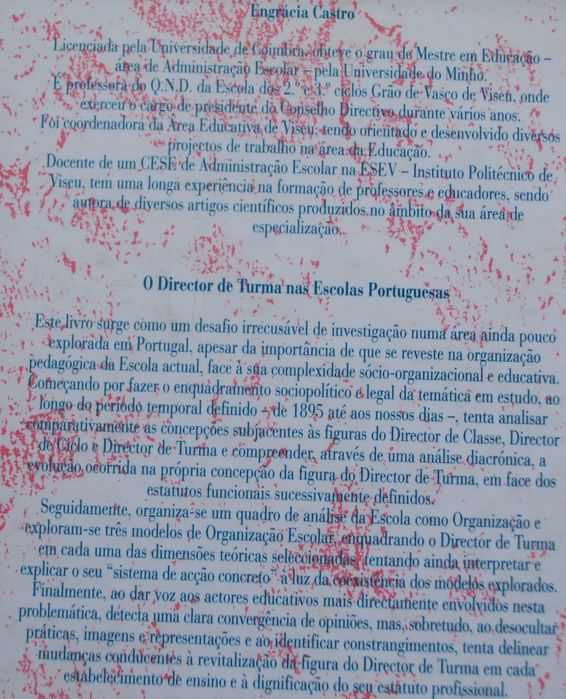 Engrácia Castro
Licenciada pela Universidade de Coimbra, obteve o grau de Mestre em Educação –
área de Administração Escolar – pela Universidade do Minho.
É professora do Q.N.D. da Escola dos 2.º e 3.º ciclos Grão de Vasco de Viseu, onde
exerceu o cargo de presidente do Conselho Directivo durante vários anos.
Foi coordenadora da Área Educativa de Viseu, tendo orientado e desenvolvido diversos
projectos de trabalho na área da Educação.
Docente de um CESE de Administração Escolar na ESEV – Instituto Politécnico de
Viseu, tem uma longa experiência na formação de professores e educadores, sendo
autora de diversos artigos científicos produzidos no âmbito da sua área de
especialização.
O Director de Turma nas Escolas Portuguesas
Este livro surge como um desafio irrecusável de investigação numa área ainda pouco
explorada em Portugal, apesar da importância de que se reveste na organização
pedagógica da Escola actual, face à sua complexidade sócio-organizacional e educativa.
Começando por fazer o enquadramento sociopolítico e legal da temática em estudo, ao
longo do período temporal definido – de 1895 até aos nossos dias –, tenta analisar
comparativamente as concepções subjacentes às figuras do Director de Classe, Director
de Ciclo e Director de Turma e compreender, através de uma análise diacrónica, a
evolução ocorrida na própria concepção da figura do Director de Turma, em face dos
estatutos funcionais sucessivamente definidos.
Seguidamente, organiza-se um quadro de análise da Escola como Organização e
exploram-se três modelos de Organização Escolar, enquadrando o Director de Turma
em cada uma das dimensões teóricas seleccionadas, tentando ainda interpretar e
explicar o seu “sistema de acção concreto” à luz da coexistência dos modelos explorados.
Finalmente, ao dar voz aos actores educativos mais directamente envolvidos nesta
problemática, detecta uma clara convergência de opiniões, mas, sobretudo, ao desocultar
práticas, imagens e representações e ao identificar constrangimentos, tenta delinear
mudanças conducentes à revitalização da figura do Director de Turma em cada
estabelecimento de ensino e à dignificação do seu estatuto profissional.